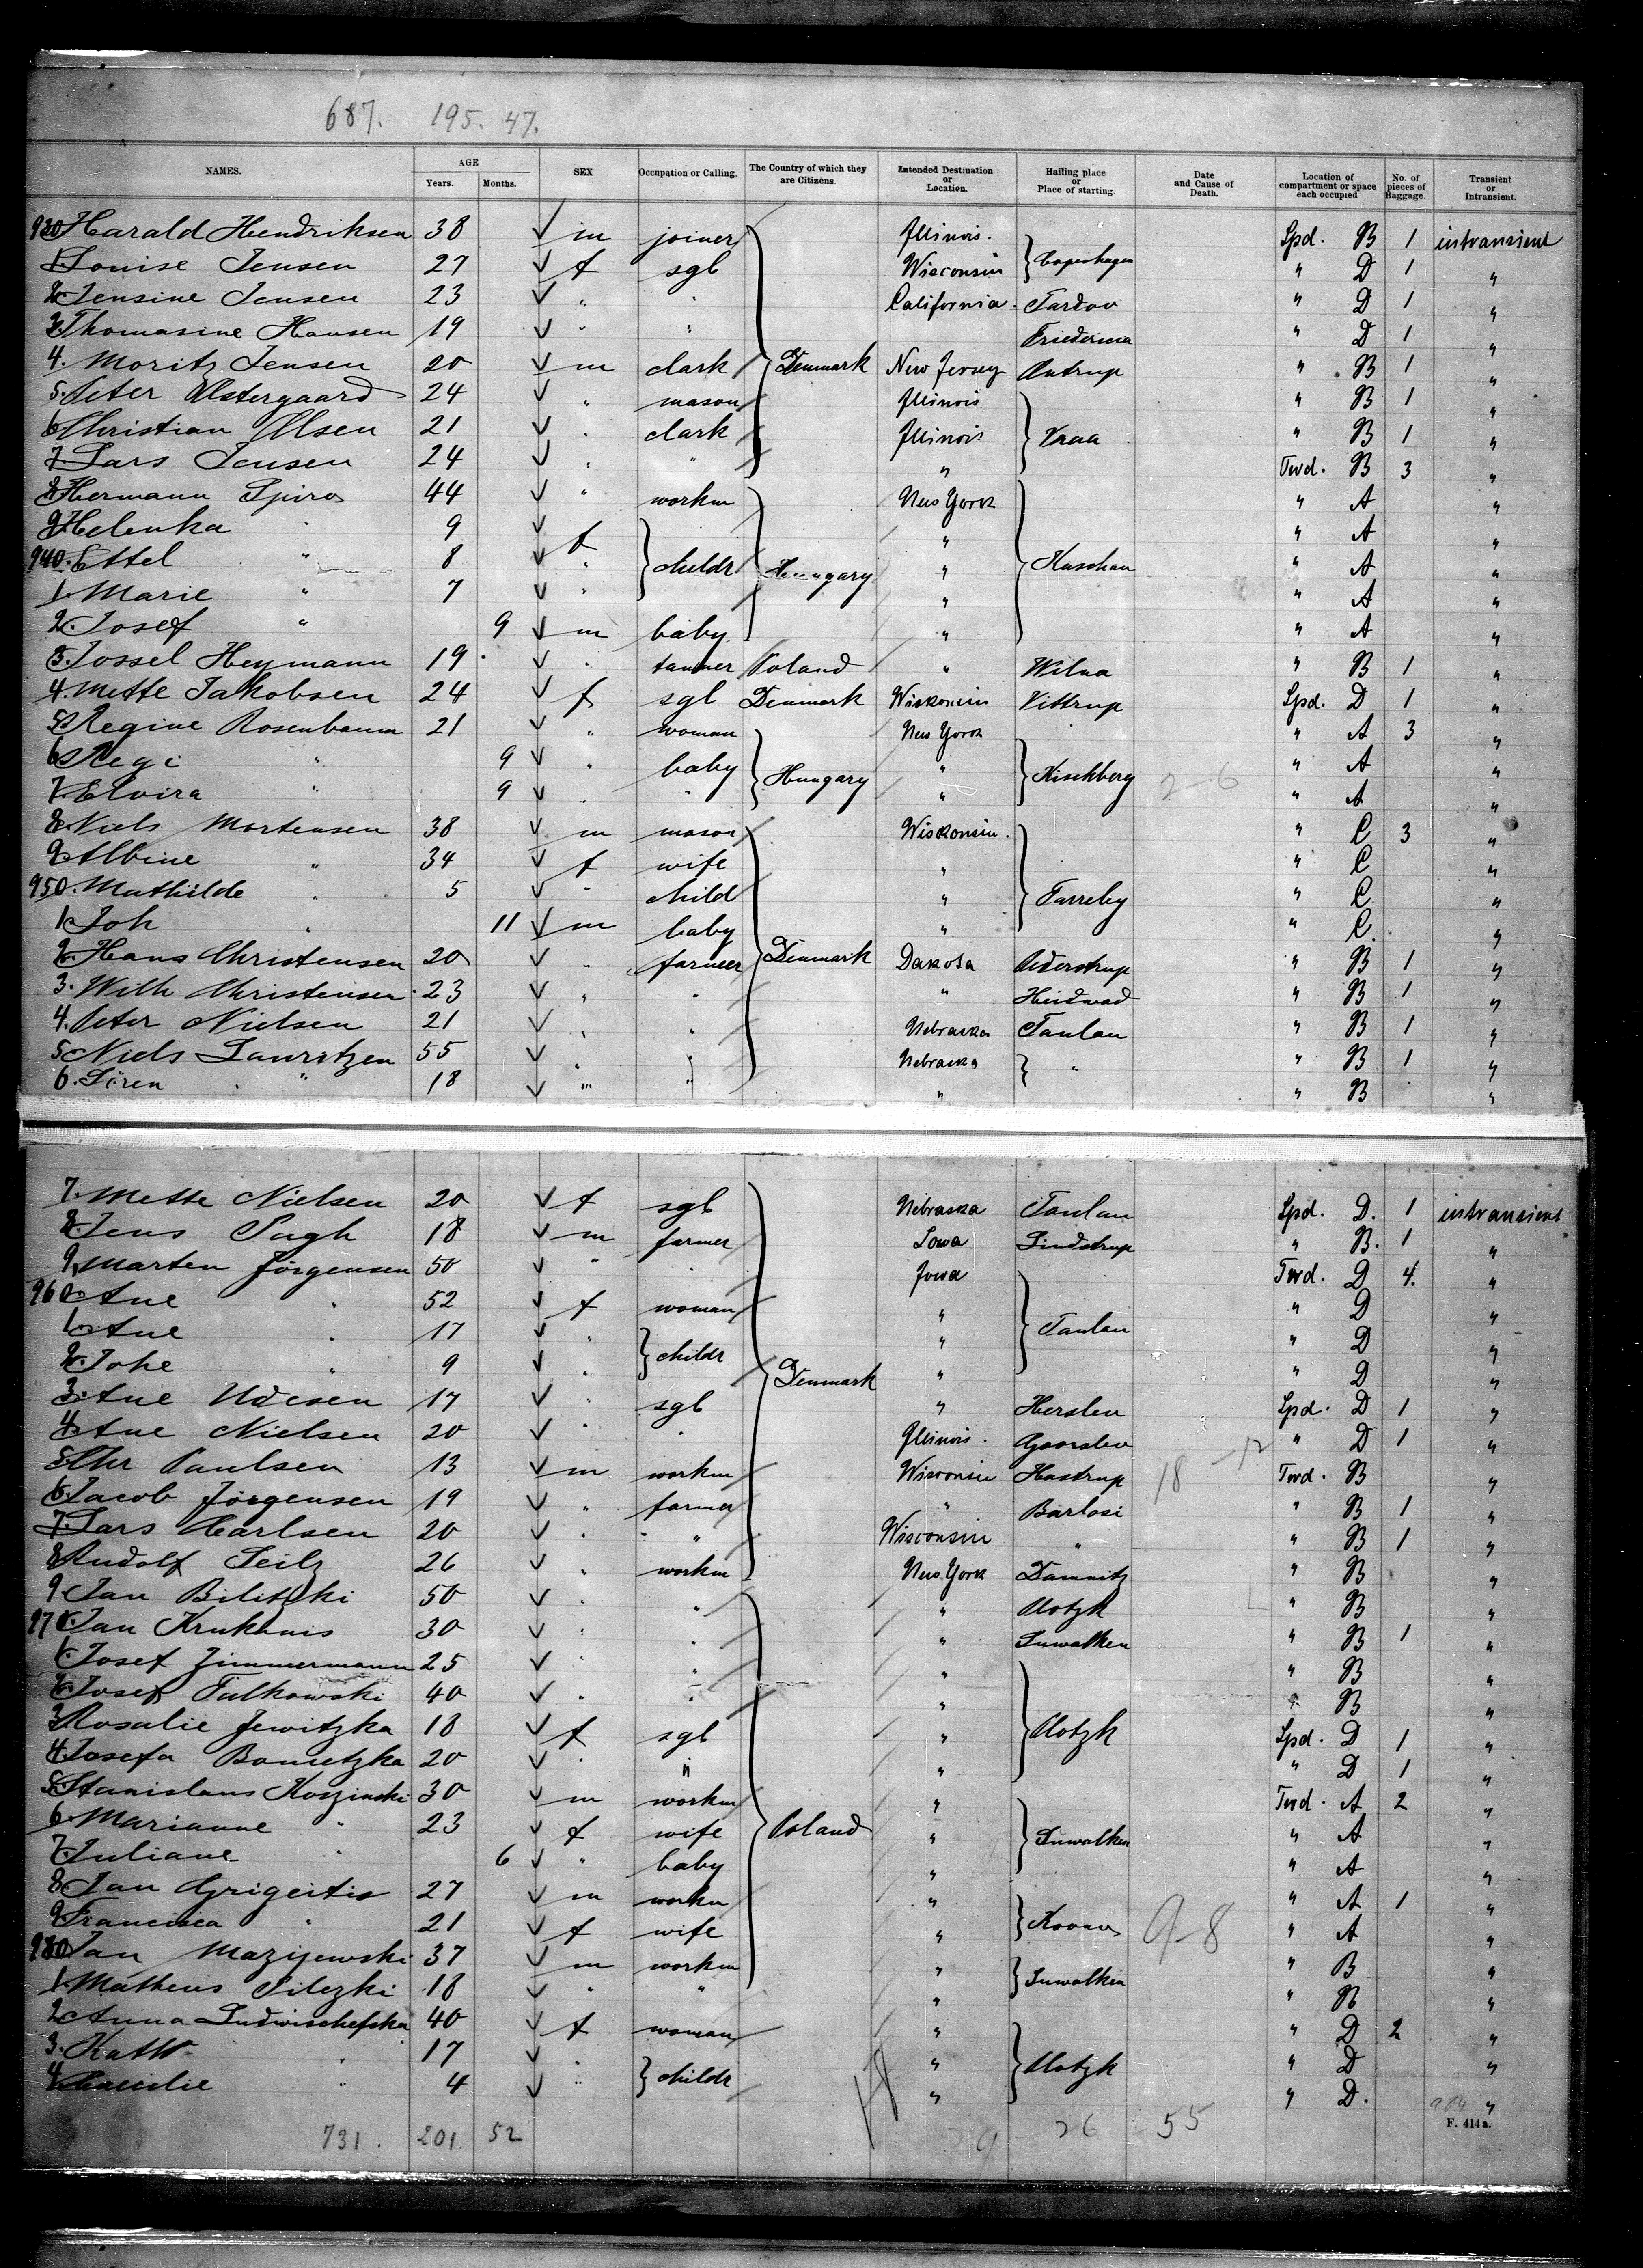 687. 195. 47.
NAMES. AGE Years. Months. SEX Occupation or Calling. The Country of which they are Citizens. Intended Destination or Location. Hailing place or Place of starting. Date and Cause of Death. Location of compartment or space each occupied No. of pieces of Baggage. Transient or Intransient.
930 Harald Hendriksen 38 m joiner Illinois. Spd. B 1 intransient
1. Louise Jensen 27 f sgl Wisconsin } Copenhagen " D 1 "
2. Jensine Jensen 23 " " California. " D 1 "
3. Thomasine Hansen 19 " " " D 1 "
4. Moritz Jensen 20 m clark } Denmark New Jersey " B 1 "
5. Peter 24 " mason Illinois " B 1 "
6. Christian Olsen 21 " clark Illinois } Vraa " B 1 "
7. Lars Jensen 24 " " " Twd. B 3 "
8. Hermann Spiro 44 " workm New York " A "
9. Helenka " 9 f " " A "
940. Ettel " 8 " } childr } Hungary " } Kaschau " A "
1. Marie " 7 " " " A "
2. Josef " 9 m baby " " A "
3. Jossel Heymann 19 " tanner Poland " Wilna " B 1 "
4. Mette Jakobsen 24 f sgl Denmark Wiskonsin Vittrup Spd. D 1 "
5. Regine Rosenbaum 21 " woman New York " A 3 "
6. Regi " 9 " baby } Hungary " } Kischberg " A "
7. Elvira " 9 " " " " A "
2-6
8. Niels Mortensen 38 m mason Wiskonsin. " C 3 "
9. Albine " 34 f wife " " C "
950. Mathilde " 5 " child " } Farreby " C "
1. Joh " 11 m baby " " C. "
2. Hans Christensen 20 " farmer } Denmark Dakota " B 1 "
3. Wilh Christensen 23 " " " " B 1 "
4. Peter Nielsen 21 " " Nebraska Taulau " B 1 "
5. Niels Lauritzen 55 " " Nebraska } " " B 1 "
6. Sören " 18 " " " " B "
7. Mette Nielsen 20 f sgl Nebraska Taulau Spd. D. 1 intransient
8. Jens 18 m farmer Iowa Lindstrup " B. 1 "
9. Marten Jörgensen 50 " " Iowa Twd. D 4. "
960. Ane " 52 f woman " " D "
1. Ane " 17 " } childr " } Taulau " D "
2. Johe " 9 " " " D "
3. Ane Udesen 17 " sgl } Denmark " Herslev Spd. D 1 "
4. Ane Nielsen 20 " " Illinois. " D 1 "
5. Chr Paulsen 13 m workm Wisconsin Hastrup 18 - 12 Twd. B "
6. Jacob Jörgensen 19 " farmer " " B 1 "
7. Lars Carlsen 20 " " Wisconsin " " B 1 "
8. Rudolf Seilz 26 " workm New York Damnitz " B "
9. Jan Bilitzki 50 " " " Plotzk " B "
970. Jan 30 " " " Suwalken " B 1 "
1. Josef Zimmermann 25 " " " " B "
2. Josef Tulkowski 40 " " " " B "
3. Rosalie Jewitzka 18 f sgl " } Plotzk Spd. D 1 "
4. Josefa 20 " " " " D 1 "
5. Stanislaus Koszinski 30 m workm " Twd. A 2 "
6. Marianne " 23 f wife } Poland " } Suwalken " A "
7. Juliane " 6 " baby " " A "
8. Jan Grigeitis 27 m workm " " A 1 "
9. Francisca " 21 f wife " } Kovno 9-8 " A "
980. Jan Mazijewski 37 m workm " } Suwalken " B "
1. Matheus Silezki 18 " " " " B "
2. Anna 40 f woman " " D 2 "
3. Kath " 17 " } childr " } Plotzk " D "
4. " 4 " " " D. "
984 F. 414a.
731. 201. 52 18 9 26 55